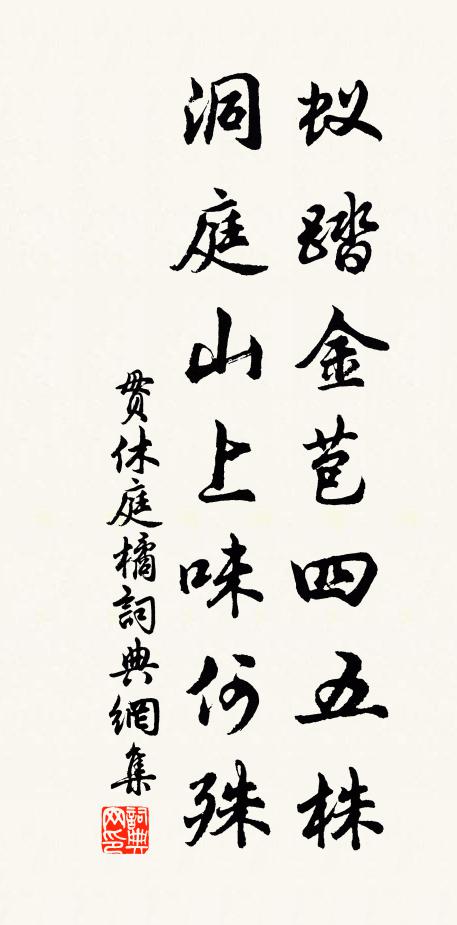 蚁踏金苞四五株
洞庭山上味何殊
贯休庭橘詞典網集
詞典网印